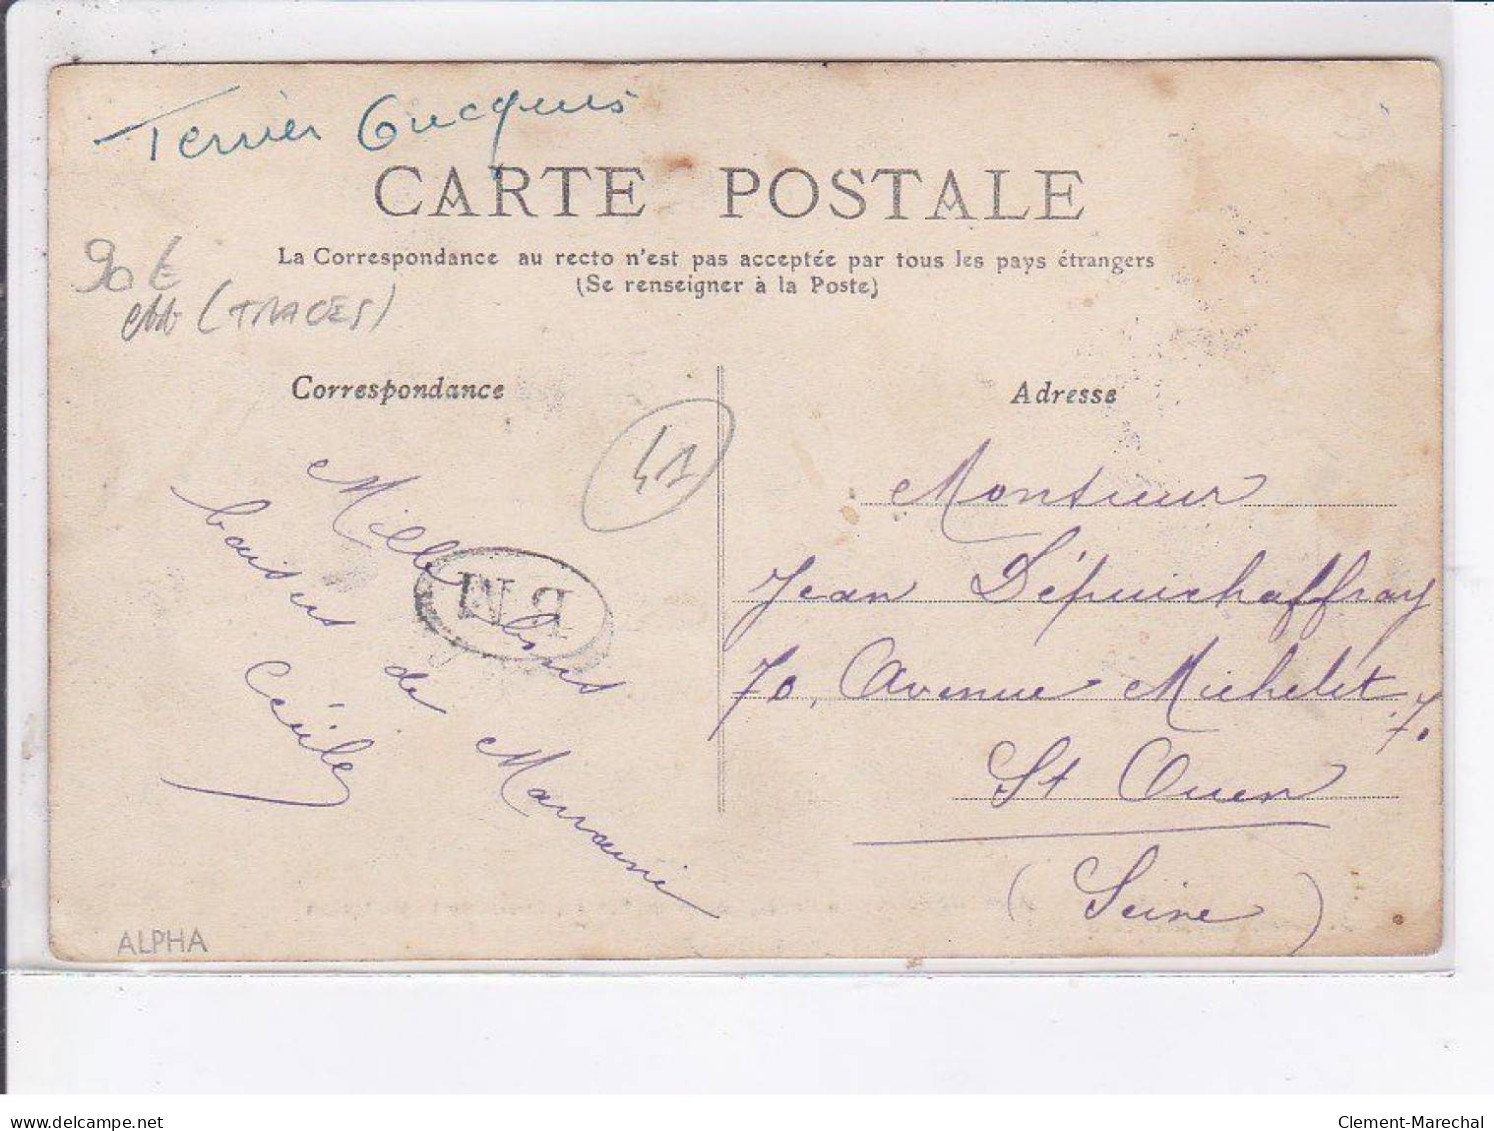 Terrier
CARTE POSTALE
La Correspondance au recto n'est pas acceptée par tous les pays étrangers
(Se renseigner à la Poste)
90 €
(TRACES)
Correspondance
Adresse
41
Mille bons
baisers de Marraine
Cécile
BM
Monsieur
Jean Dépuichaffray
70, Avenue Michelet, 70
St Ouen
(Seine)
ALPHA
delcampe.net
Clement-Marechal